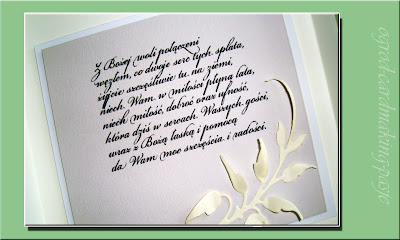 Z Bożej woli połączeni
węzłem, co dwoje serc tych splata,
życie szczęśliwie tu, na ziemi,
niech Wam w miłości płyną lata,
niech miłość, dobroć oraz ufność,
która dziś w sercach Waszych gości,
wraz z Bożą łaską i pomocą
da Wam moc szczęścia i radości.